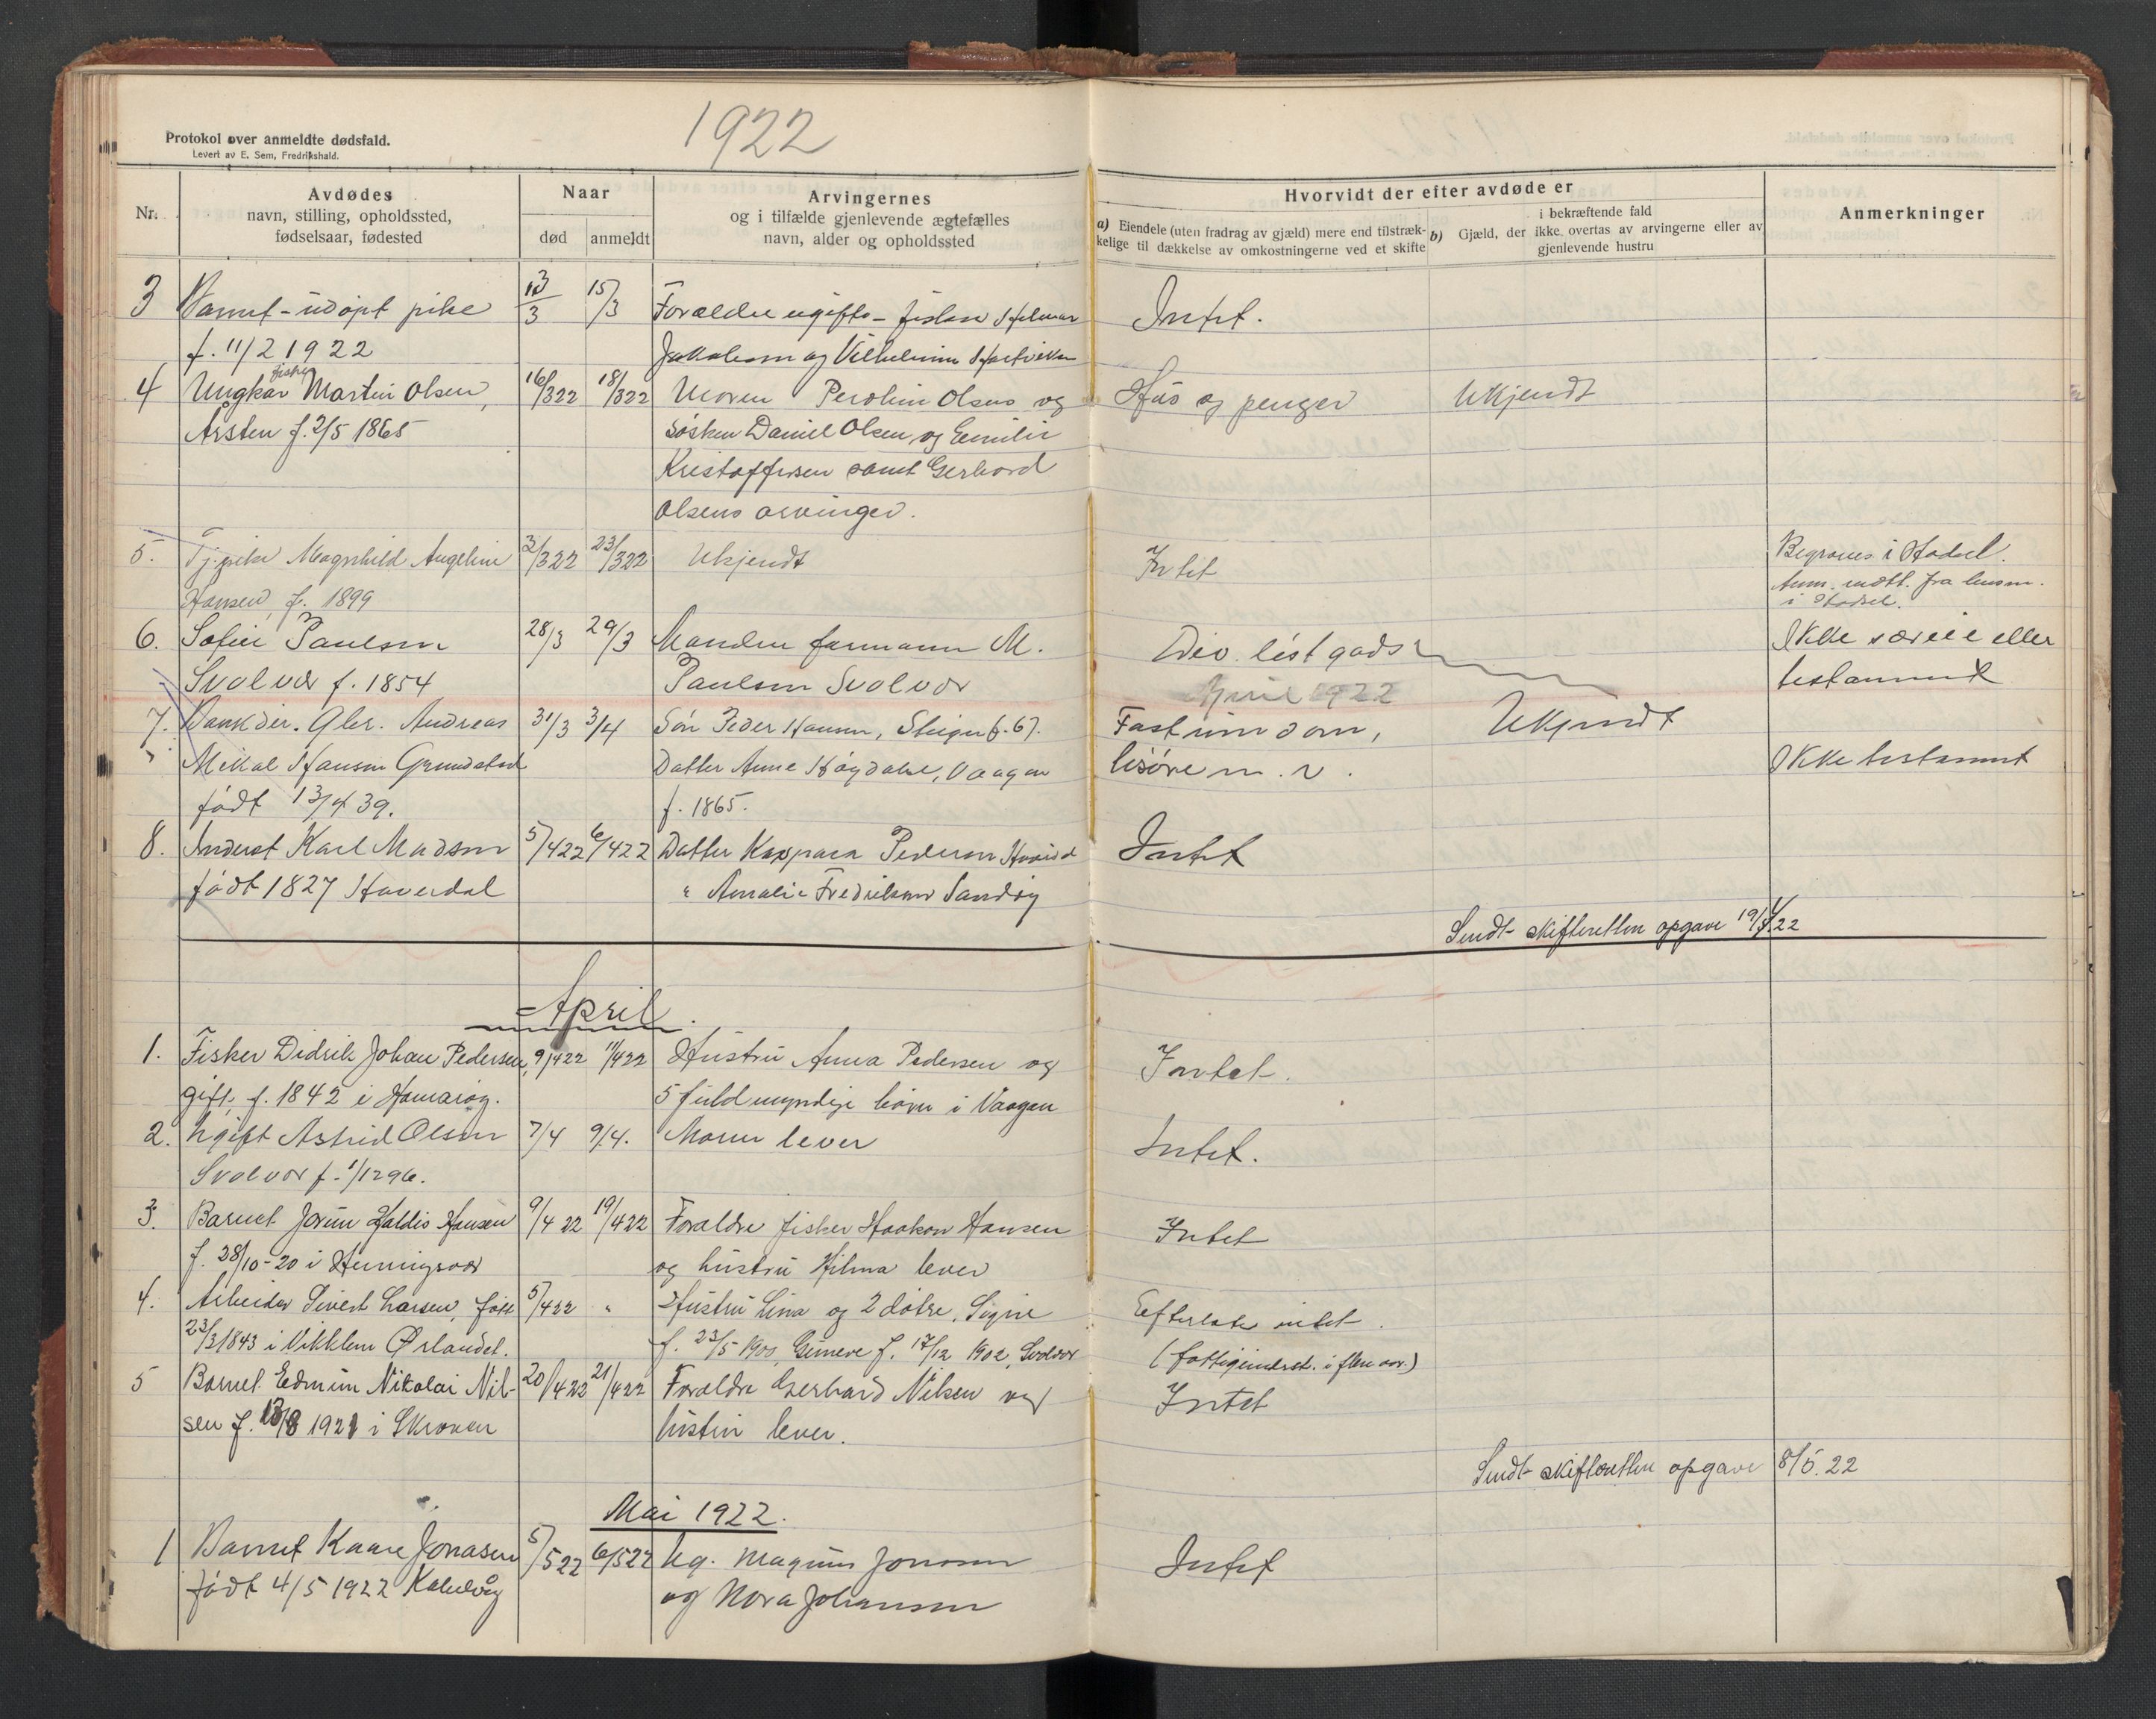 1922
Protokol over anmeldte dødsfald.
Levert av E. Sem, Fredrikshald.
Nr.
Avdødes
navn, stilling, opholdssted,
fødselsaar, fødested
Naar
død anmeldt
Arvingernes
og i tilfælde gjenlevende ægtefælles
navn, alder og opholdssted
Hvorvidt der efter avdøde er
a) Eiendele (uten fradrag av gjæld) mere end tilstræk-
kelige til dækkelse av omkostningerne ved et skifte
i bekræftende fald
b) Gjæld, der ikke overtas av arvingerne eller av
gjenlevende hustru
Anmerkninger
3 Barnet - udøpt pike 13/3 15/3 Forældre ugifte - fisker Hilmar Intet.
f. 11/2 1922 Jakobsen og Vilhelmine
4 Ungkar fisker Martin Olsen, 16/322 18/322 Moren Peroline Olsens og Hus og penger Ukjendt
Årsten f. 2/5 1865 søsken Daniel Olsen og Emilie
Kristoffersen samt Gerhard
Olsens arvinger.
5. Tj.pike Magnhild Angeline 3/322 23/322 Ukjendt Intet Begraves i Hadsel.
Hansen, f. 1899 Anm. mott. fra lensm.
i Hadsel.
6. Sofie Paulsen 28/3 29/3 Manden formann M. Div. løst gods Ikke særeie eller
Svolvær f. 1854 Paulsen Svolvær testament
April 1922
7. Bankdir. Gbr. Andreas 31/3 3/4 Søn Peder Hansen, Steigen f. 67. Fast eiendom, Ukjendt
Mikal Hansen Grundstad Datter Anne Høgdahl, Vaagan løsøre m. v. Ikke testament
født 13/4 39. f. 1865.
8. Inderst Karl Madsen 5/422 6/422 Datter Kaspara Pedersen Intet
født 1827 Haverdal " Amalie Fredriksen Sandøy
Sendt skifteretten opgave 19/4 22
April.
1. Fisker Didrik Johan Pedersen, 9/422 11/422 Hustru Anna Pedersen og Intet.
gift, f. 1842 i Hamarøy. 5 fuldmyndige børn i Vaagan
2. Ugift Astrid Olsen 7/4 9/4. Moren lever Intet.
Svolvær f. 1/1296.
3. Barnet Jorun Haldis Hansen 9/4 22 19/422 Forældre fisker Haakon Hansen Intet
f. 28/10-20 i Henningsvær og hustru Hilma lever
4. Arbeider Sivert Larsen, født 5/422 " Hustru Lina og 2 døtre, Signe Efterlater intet.
23/3 1843 i Vikklem Ørlandet. f. 23/5 1900, f. 17/12 1902, Svolvær (fattigunderst. i flere aar.)
5 Barnet Edmun Nikolai Nil- 20/422 21/422 Forældre Gerhard Nilsen og Intet
sen f. 13/8 1921 i Skroven hustru lever.
Sendt skifteretten opgave 8/5. 22
Mai 1922.
1 Barnet Kaare Jonasen 5/522 6/522 Ug. Magnus Jonasen Intet
født 4/5 1922 Kabelvåg og Nora Johansen